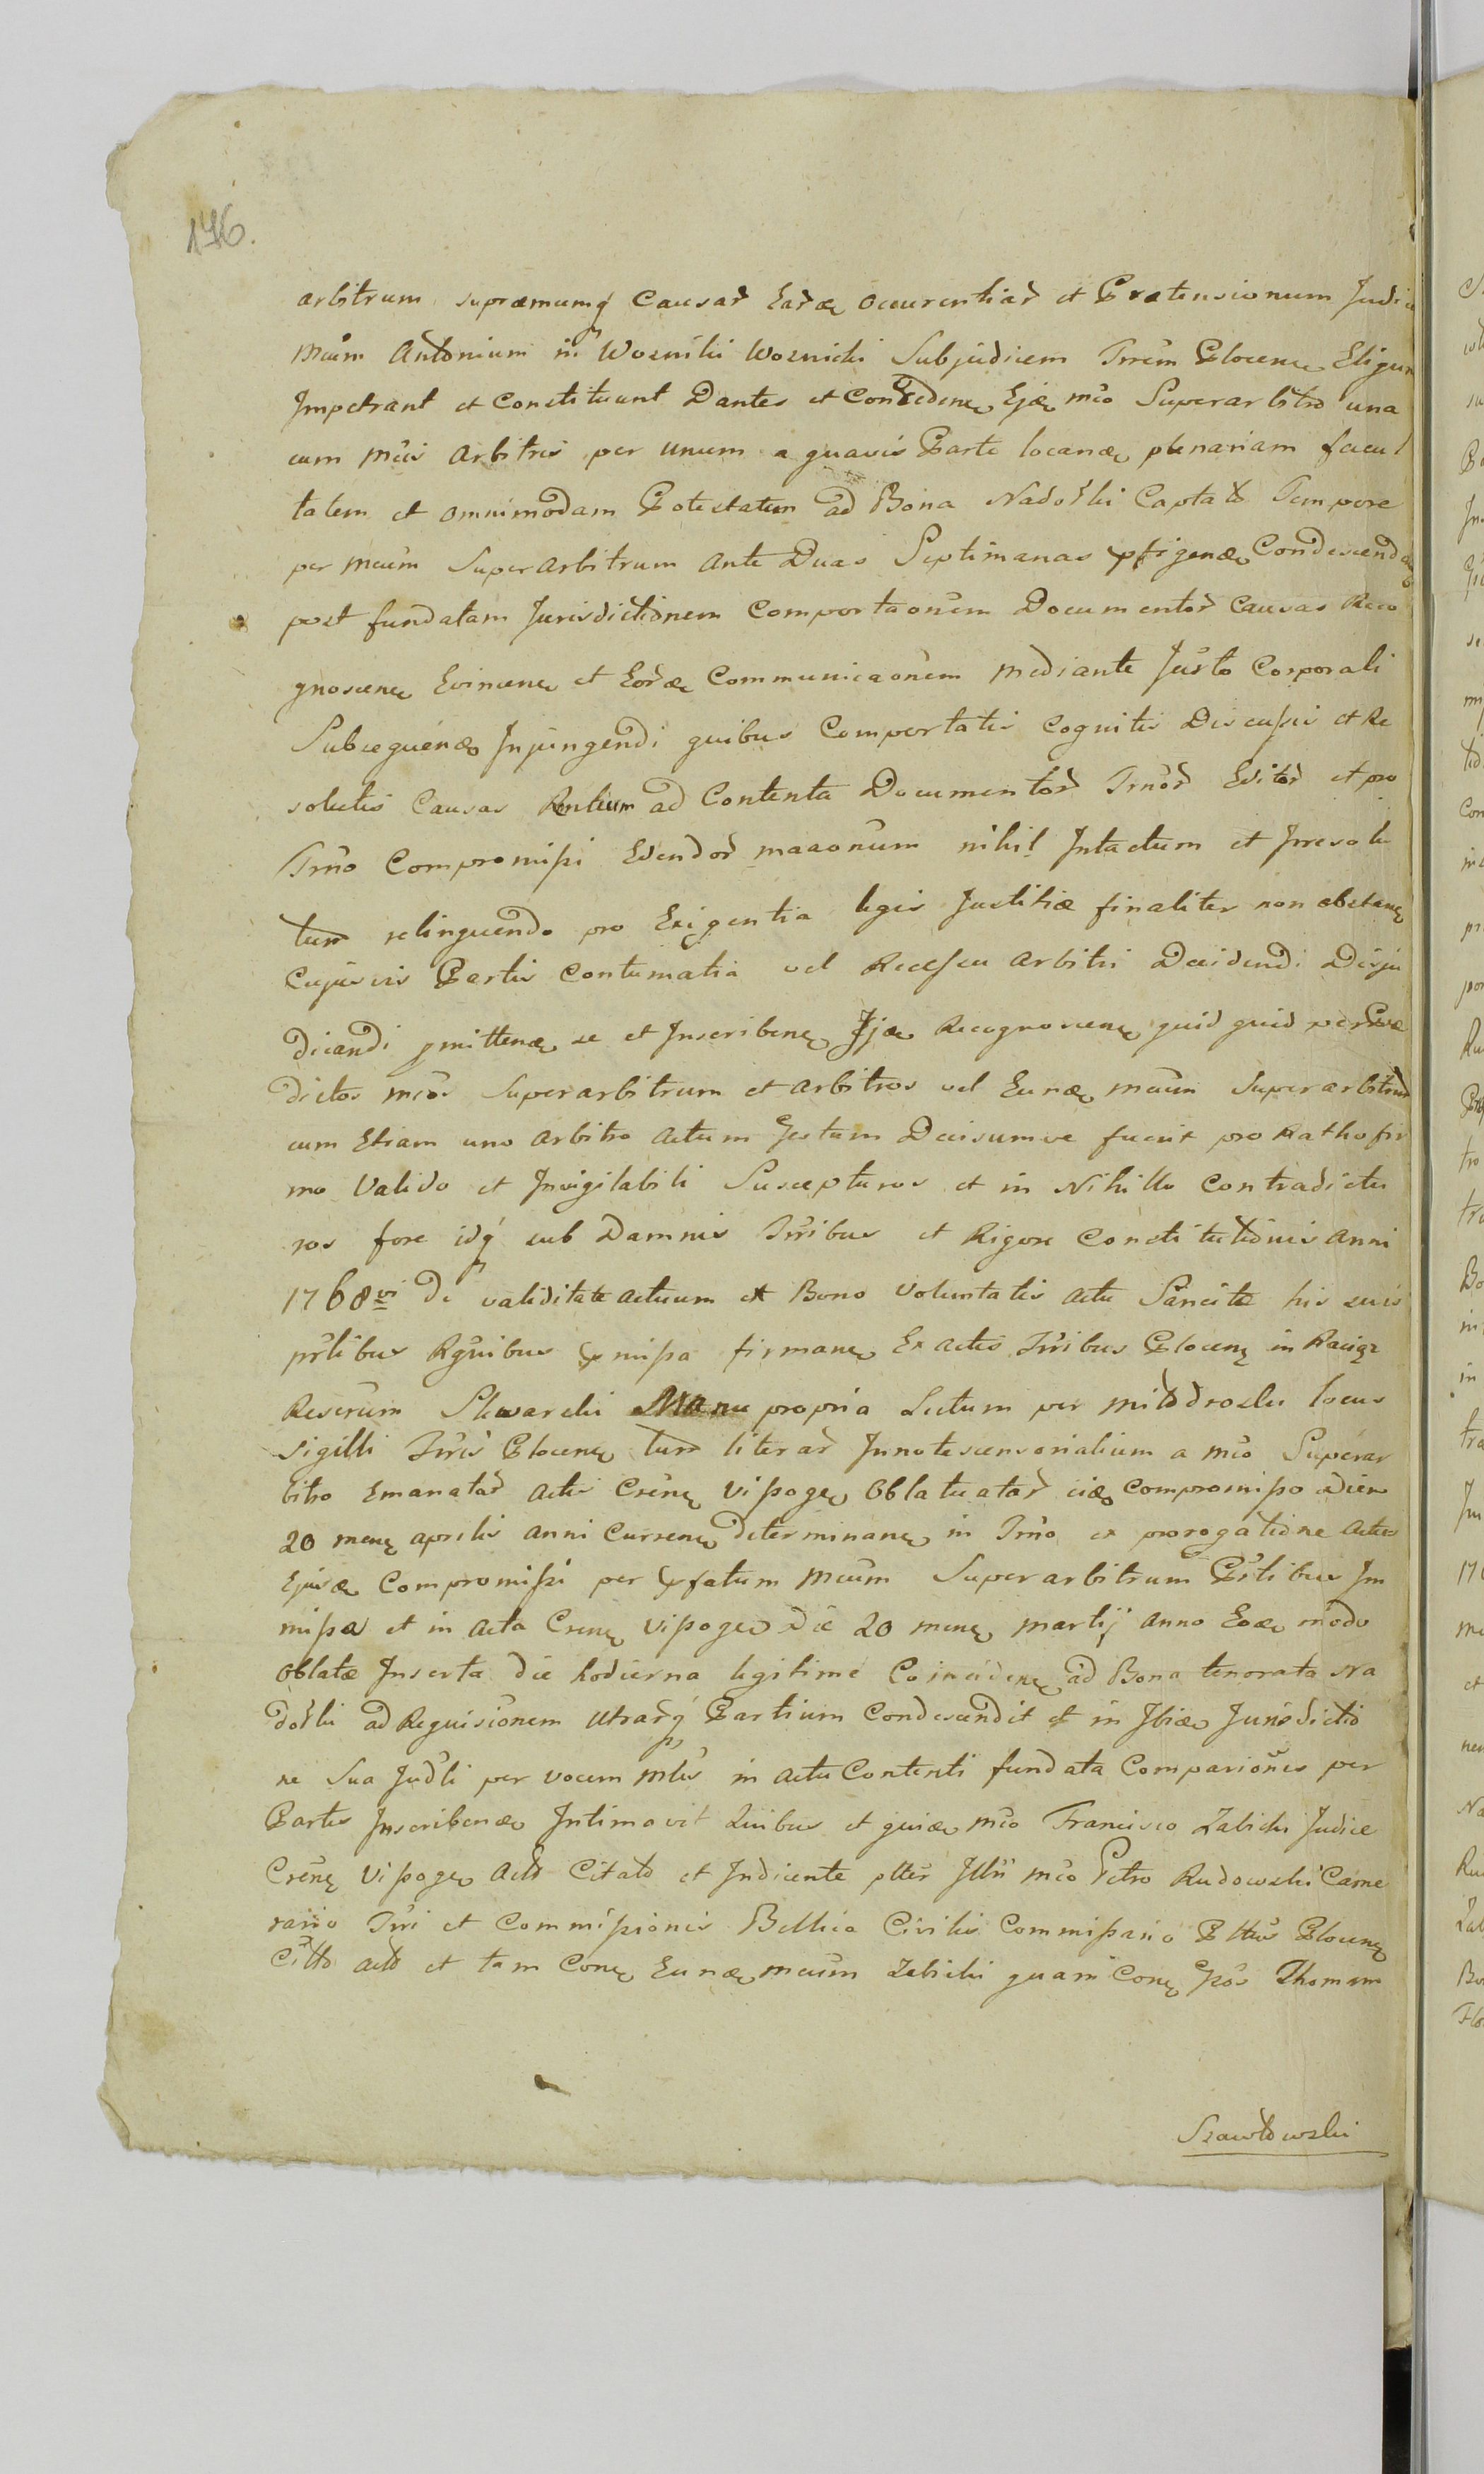 176.
arbitrum supræmumq́ Causar̃ Ear̃dæ occurentiar̃ et Prætensionum Judi
Mcum Antonium in Wozniki Woznicki Subjudicem Trrem Plocenę Eligun
Impetrant et Constituunt Dantes et Concedenę Ejdę mco Superarbitro una
cum Mcis Arbitris per unum a quavis Parte locandę plenariam facul
tatem et omnimodam Potestatem ad Bona Nadołki Captato Tempore
per Mcum Superarbitrum ante Duas Septimanas pfigendę Condescendę
post fundatam Jurisdictionem Comportaonem Documentor̃ Causas Reco
gnoscenę Evincenę et Eor̃dę Communicaonem mediante Jur̃to Corporali
Subsequendę Injungendi quibus Comportatis Cognitis Discussis et Re
solutis Causas Partium ad Contenta Documentor̃ Trnor̃ Editor̃ et pro
Trno Compromissi Edendor̃ maaonum nihil Intactum et Irresolu
tum relinquendo pro Exigentia legis Justitiæ finaliter non obstanę
Cujusvis Partis Contumatia vel Recessu Arbitri Decidendi Disju
dicandi pmittendę se et Inscribenę Ijdę Recognoscenę quid quid per Præ
dictos mcos Superarbitrum et Arbitros vel Eundę mcum Superarbitrum
cum Etiam uno Arbitro Actum Gestum Decisumve fuerit pro Ratho fir
mo Valido et Inviglabili Suscepturos et in Nihillo Contradictu
ros fore idq́ sub Damnis Trribus et Rigore Constitutionis Anni
1768vi De validitate Actuum ex Bono Voluntatis Actu Sancitæ his suis
prlibus Rgnibus pmissa firmanę Ex Actis Trribus Plocenę in Raciąz
Reserum Skwarski Manu propria Lectum per Miłodroski locus
Sigilli Trris Plocenę tum literar̃ Innotescensorialium a mco Superar
bitro Emanatar̃ Actis Csenę Vissogę Oblatuatar̃ eidę Compromisso Diem
20 menę Aprilis Anni Currenę Determinanę in Trno ex prorogatione Actus
Ejusdę Compromissi per pfatum Mcum Superarbitrum Prtibus Im
missa et in Acta Csenę Vissogę Die 20 menę Martij Anno Eodę modo
Oblatæ Inserta die hodierna legitime Coincidenę ad Bona tenorata Na
dołki ad Requisionem Utrarq́ Partium Condescendit et in Ibidę Jurisdictio
ne Sua Judli per vocem mlis in Actu Contenti fundata Comparionės per
Partes Inscribendę Intimavit Quibus et quidę mco Francisco Zabicki Judice
Csenę Vissogę Acto Citato et Indicente ptter Illri mco Petro Rudowski Came
rario Trri et Commissionis Bellico Civilis Commissario Pttus Plocenę
Citto acto et tam Conę Eundę mcum Zabicki quam Conę Gsos Thomam
Szawłowski